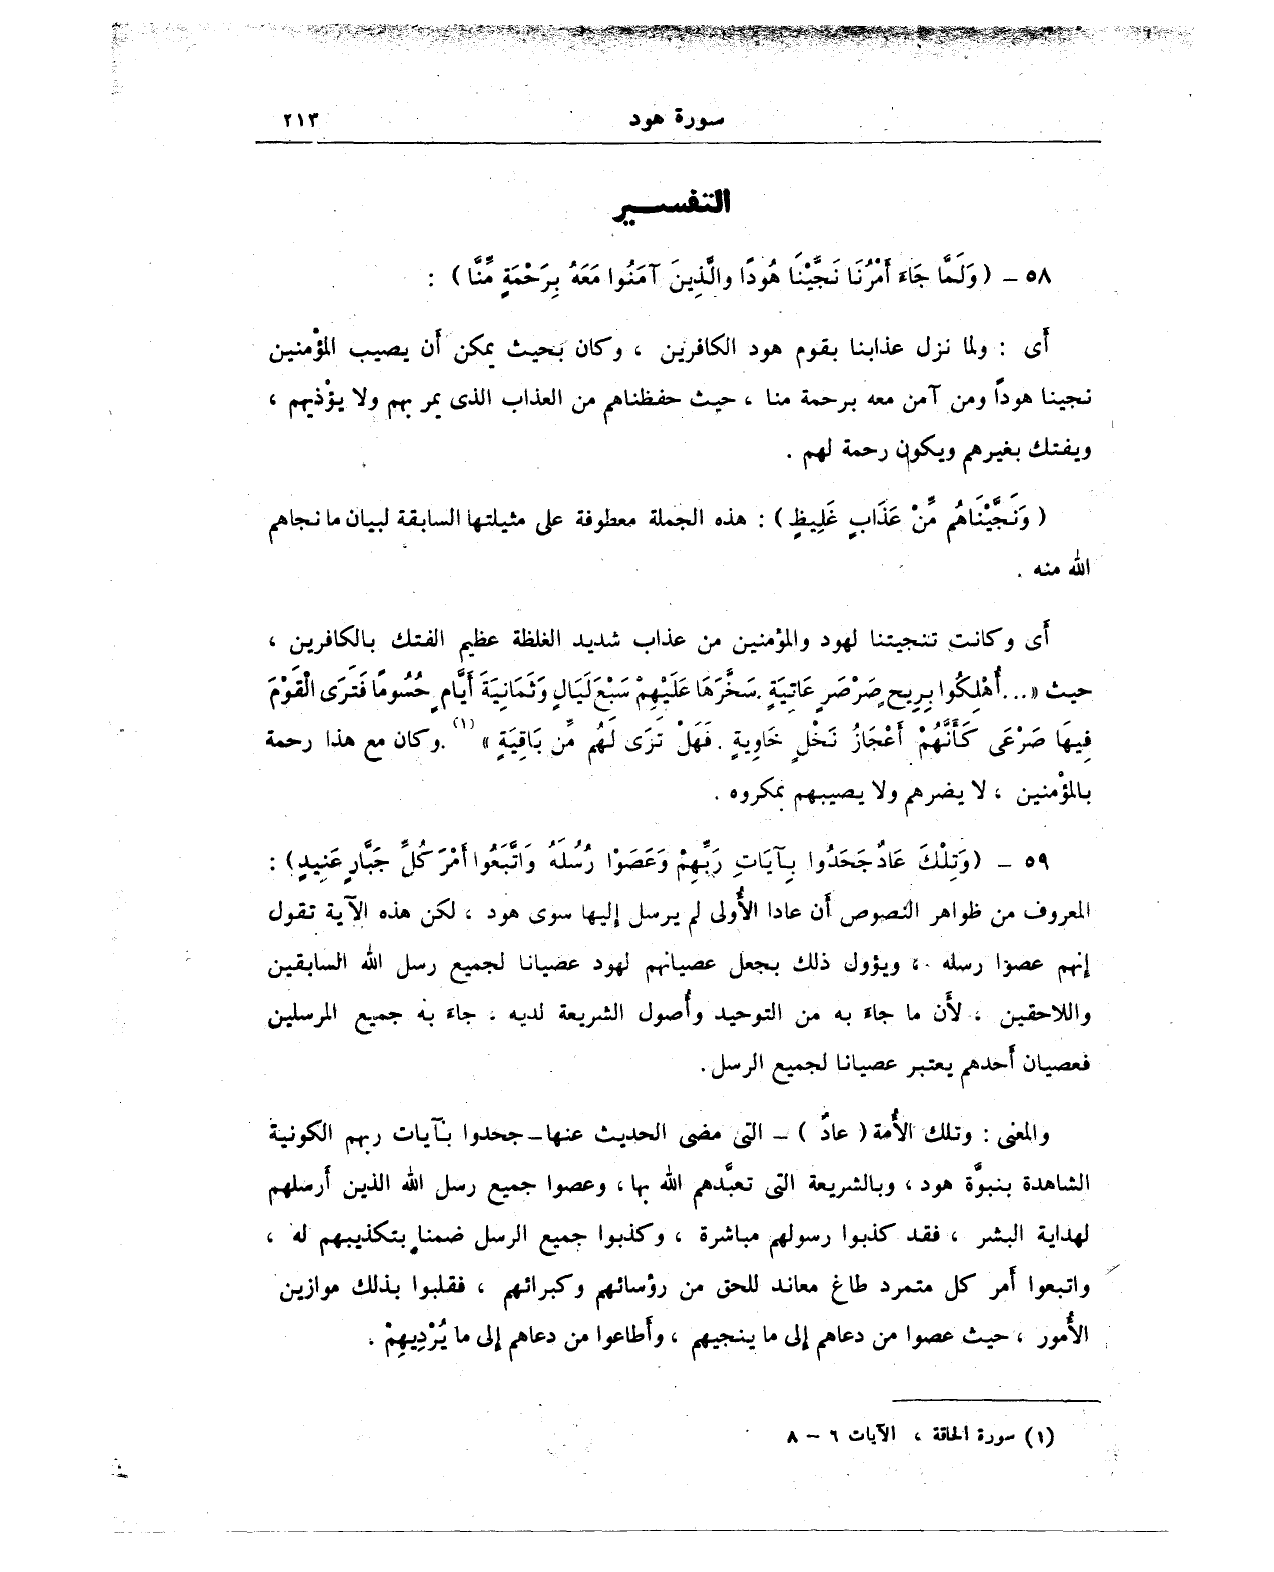 سورة هود
٢١٣
التفسير
٥٨ – (وَلَمَّا جَاءَ أَمْرُنَا نَجَّيْنَا هُودًا والَّذِينَ آمَنُوا مَعَهُ بِرَحْمَةٍ مِّنَّا) :
أى : ولما نزل عذابنا بقوم هود الكافرين ، وكان بحيث يمكن أن يصيب المؤْمنين
نجينا هودًا ومن آمن معه برحمة منا ، حيث حفظناهم من العذاب الذى يمر بهم ولا يؤْذيهم ،
ويفتك بغيرهم ويكون رحمة لهم .
(وَنَجَّيْنَاهُم مِّنْ عَذَابٍ غَلِيظٍ) : هذه الجملة معطوفة على مثيلتها السابقة لبيان ما نجاهم
الله منه .
أى وكانت تنجيتنا لهود والمؤمنين من عذاب شديد الغلظة عظيم الفتك بالكافرين ،
حيث «...أُهْلِكُوا بِرِيحٍ صَرْصَرٍ عَاتِيَةٍ .سَخَّرَهَا عَلَيْهِمْ سَبْعَ لَيَالٍ وَثَمَانِيَةَ أَيَّامٍ حُسُومًا فَتَرَى الْقَوْمَ
فِيهَا صَرْعَى كَأَنَّهُمْ أَعْجَازُ نَخْلٍ خَاوِيةٍ . فَهَلْ تَرَى لَهُم مِّن بَاقِيَةٍ » (١) .وكان مع هذا رحمة
بالمؤْمنين ، لا يضرهم ولا يصيبهم بمكروه .
٥٩ – (وَتِلْكَ عَادٌ جَحَدُوا بِآيَاتِ رَبِّهِمْ وَعَصَوْا رُسُلَهُ وَاتَّبَعُوا أَمْرَ كُلِّ جَبَّارٍ عَنِيدٍ) :
المعروف من ظواهر النصوص أن عادا الأُولى لم يرسل إليها سوى هود ، لكن هذه الآية تقول
إنهم عصوا رسله ، ويؤول ذلك بجعل عصيانهم لهود عصيانا لجميع رسل الله السابقين
واللاحقين ، لأَن ما جاءَ به من التوحيد وأُصول الشريعة لديه ، جاءَ به جميع المرسلين
فعصيان أَحدهم يعتبر عصيانا لجميع الرسل .
والمعنى : وتلك الأُمة (عادٌ) – التى مضى الحديث عنها – جحدوا بآيات ربهم الكونية
الشاهدة بنبوَّة هود ، وبالشريعة التى تعبَّدهم الله بها ، وعصوا جميع رسل الله الذين أَرسلهم
لهداية البشر ، فقد كذبوا رسولهم مباشرة ، وكذبوا جميع الرسل ضمنا بتكذيبهم له ،
واتبعوا أَمر كل متمرد طاغ معاند للحق من رؤسائهم وكبرائهم ، فقلبوا بذلك موازين
الأُمور ، حيث عصوا من دعاهم إلى ما ينجيهم ، وأَطاعوا من دعاهم إلى ما يُرْدِيهِمْ .
(١) سورة الحاقة ، الآيات ٦ – ٨